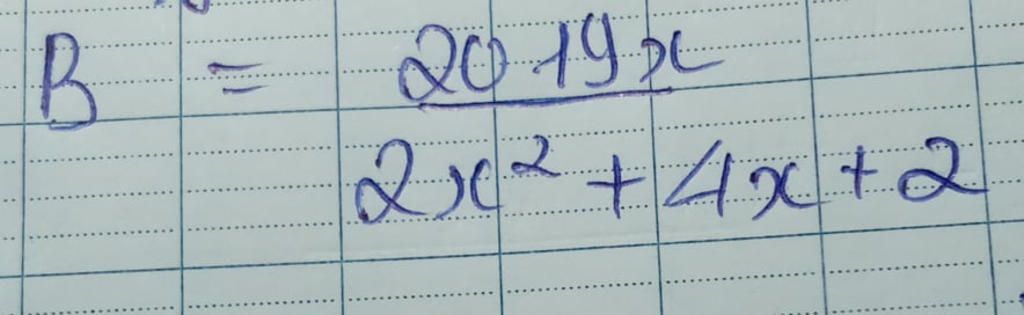 B = 2019x / 2x² + 4x + 2